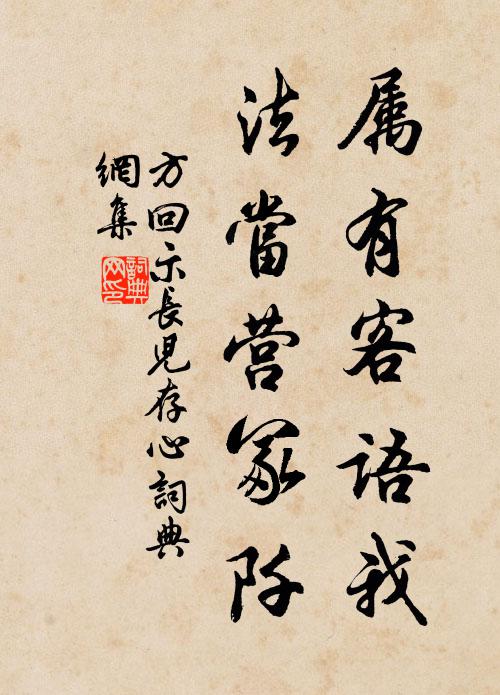 属有客语我
法當营冢阡
方回示長児存心詞典
網集
詞典
网印